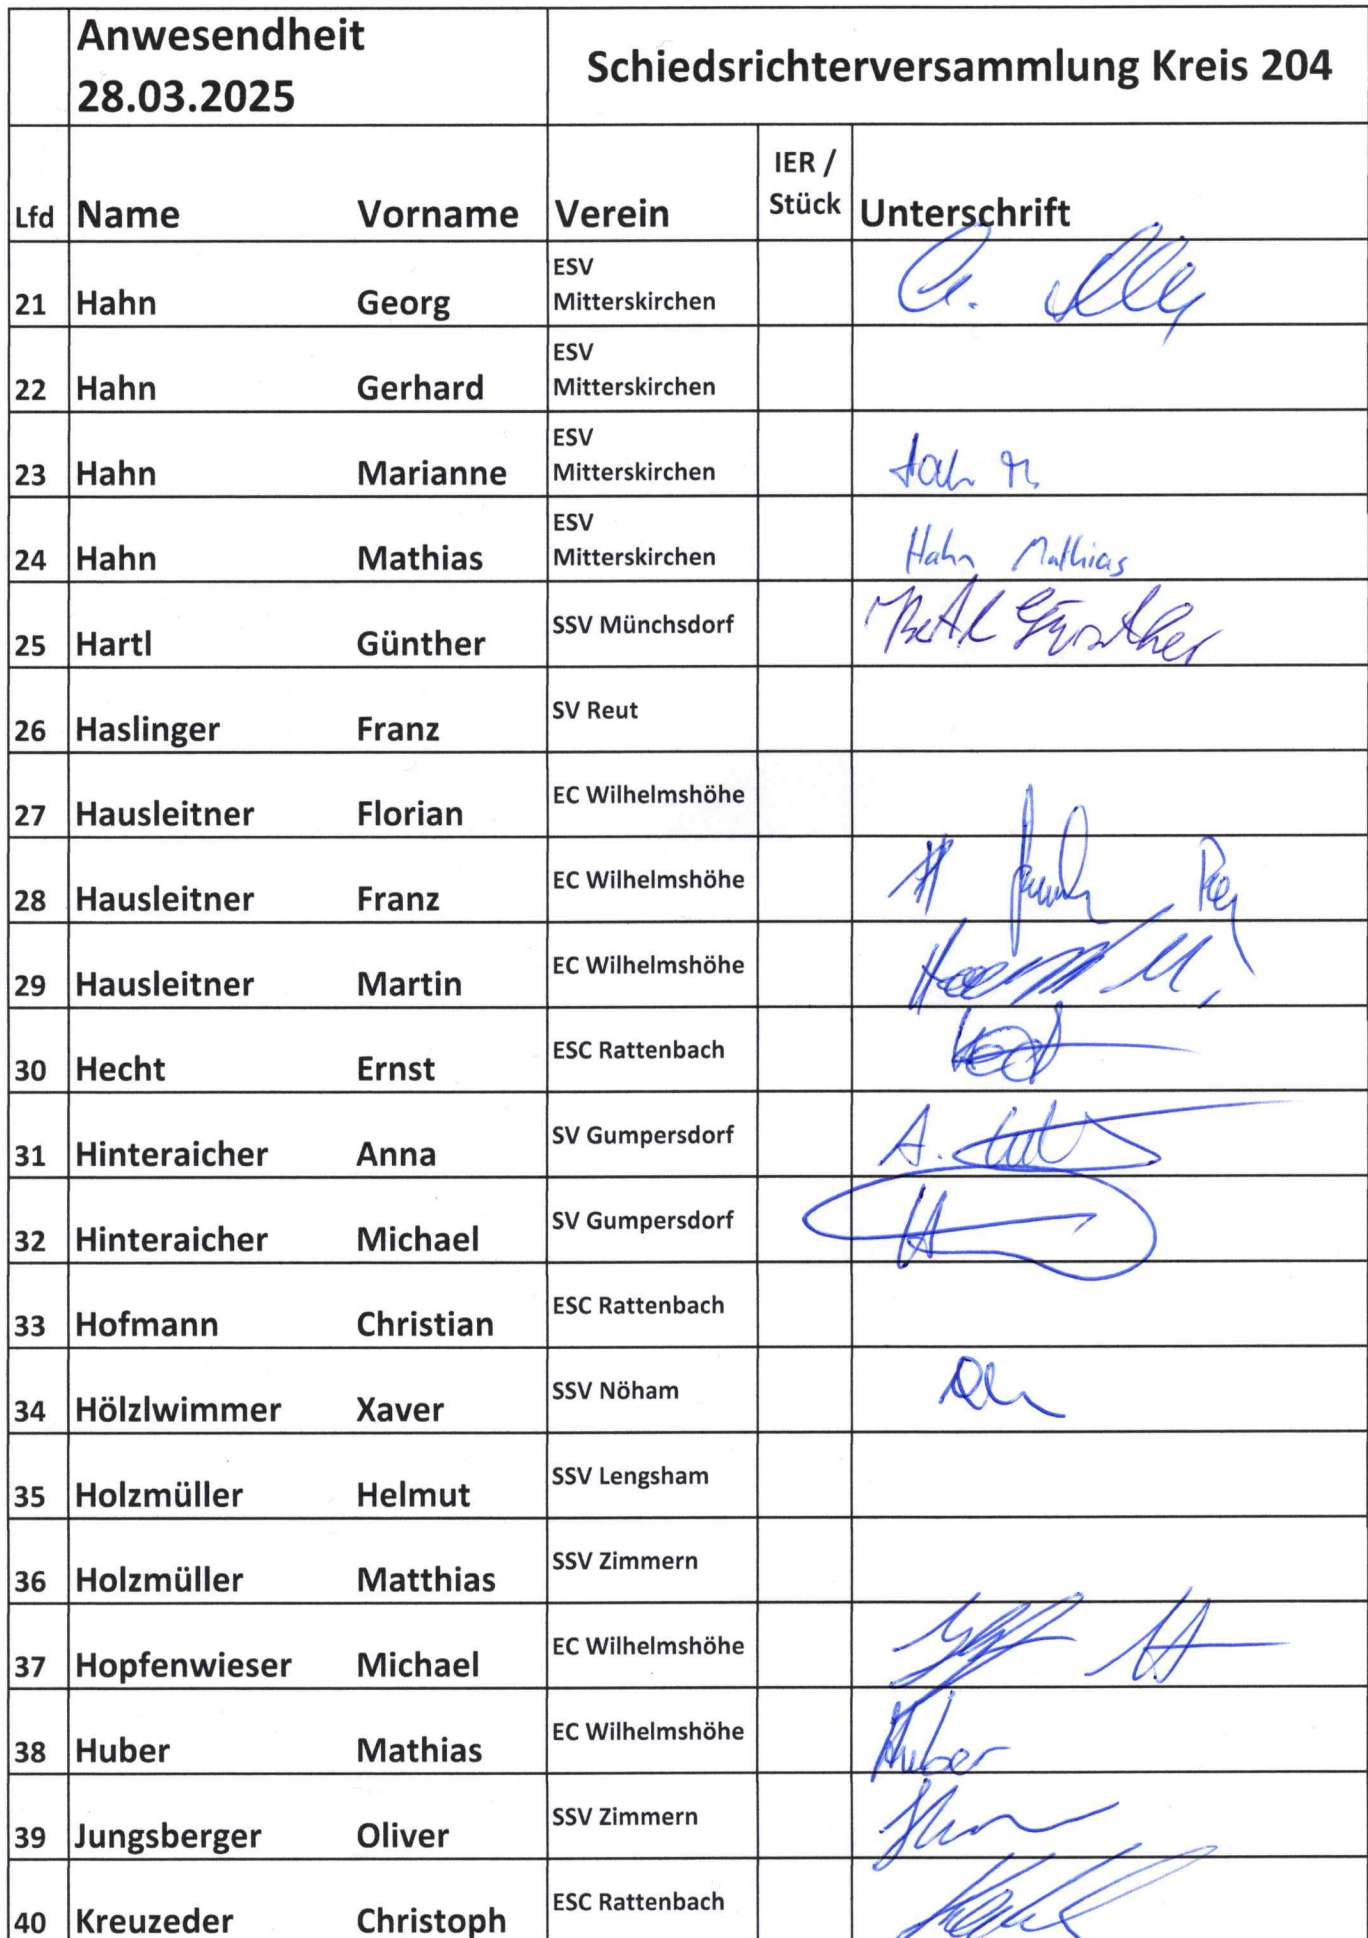 Anwesendheit
28.03.2025
Schiedsrichterversammlung Kreis 204
Lfd Name Vorname Verein IER / Stück Unterschrift
21 Hahn Georg ESV Mitterskirchen
22 Hahn Gerhard ESV Mitterskirchen
23 Hahn Marianne ESV Mitterskirchen
24 Hahn Mathias ESV Mitterskirchen Hahn Mathias
25 Hartl Günther SSV Münchsdorf Günther
26 Haslinger Franz SV Reut
27 Hausleitner Florian EC Wilhelmshöhe
28 Hausleitner Franz EC Wilhelmshöhe
29 Hausleitner Martin EC Wilhelmshöhe
30 Hecht Ernst ESC Rattenbach
31 Hinteraicher Anna SV Gumpersdorf A.
32 Hinteraicher Michael SV Gumpersdorf
33 Hofmann Christian ESC Rattenbach
34 Hölzlwimmer Xaver SSV Nöham
35 Holzmüller Helmut SSV Lengsham
36 Holzmüller Matthias SSV Zimmern
37 Hopfenwieser Michael EC Wilhelmshöhe
38 Huber Mathias EC Wilhelmshöhe Huber
39 Jungsberger Oliver SSV Zimmern
40 Kreuzeder Christoph ESC Rattenbach